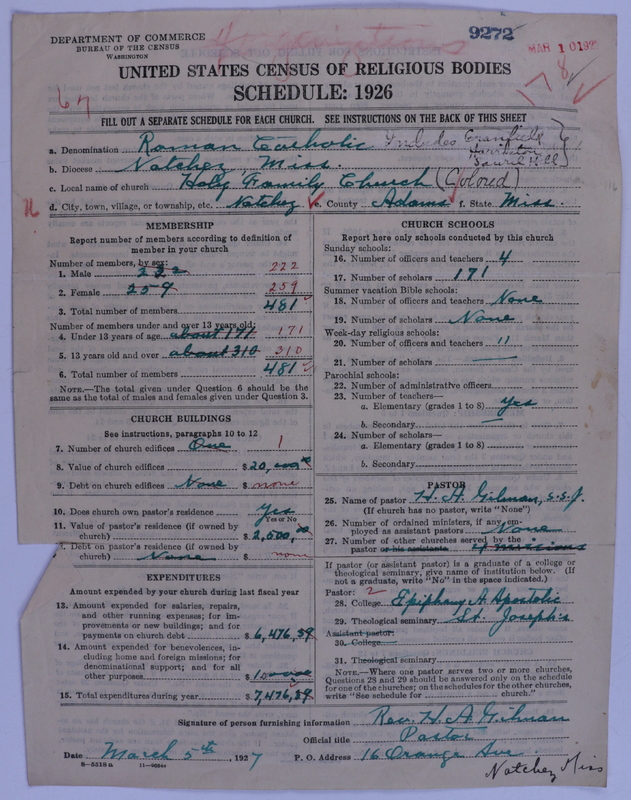 DEPARTMENT OF COMMERCE
BUREAU OF THE CENSUS
WASHINGTON
9272
MAR 10 192
UNITED STATES CENSUS OF RELIGIOUS BODIES
SCHEDULE: 1926
FILL OUT A SEPARATE SCHEDULE FOR EACH CHURCH. SEE INSTRUCTIONS ON THE BACK OF THIS SHEET
a. Denomination Roman Catholic Includes Cranfield
b. Diocese Natchez Miss.
c. Local name of church Holy Family Church (Colored)
d. City, town, village, or township, etc. Natchez e. County Adams f. State Miss.
MEMBERSHIP
Report number of members according to definition of
member in your church
Number of members, by sex:
1. Male 222 222
2. Female 259 259
3. Total number of members 481
Number of members under and over 13 years old:
4. Under 13 years of age about 171 171
5. 13 years old and over about 310 310
6. Total number of members 481
NOTE.—The total given under Question 6 should be
the same as the total of males and females given under Question 3.
CHURCH BUILDINGS
See instructions, paragraphs 10 to 12
7. Number of church edifices One 1
8. Value of church edifices $ 20,
9. Debt on church edifices None $ none
10. Does church own pastor's residence? Yes
Yes or No
11. Value of pastor's residence (if owned by
church) $ 2,500,
Debt on pastor's residence (if owned by
church) None $ none
EXPENDITURES
Amount expended by your church during last fiscal year
13. Amount expended for salaries, repairs,
and other running expenses; for im-
provements or new buildings; and for
payments on church debt $ 6,476,39
14. Amount expended for benevolences, in-
cluding home and foreign missions; for
denominational support; and for all
other purposes $
15. Total expenditures during year $ 7,476,39
CHURCH SCHOOLS
Report here only schools conducted by this church
Sunday schools:
16. Number of officers and teachers 4
17. Number of scholars 171
Summer vacation Bible schools:
18. Number of officers and teachers None
19. Number of scholars None
Week-day religious schools:
20. Number of officers and teachers "
21. Number of scholars
Parochial schools:
22. Number of administrative officers
23. Number of teachers—
a. Elementary (grades 1 to 8) Yes
b. Secondary
24. Number of scholars—
a. Elementary (grades 1 to 8)
b. Secondary
PASTOR
25. Name of pastor H. A. Gilman, S.S.J.
(If church has no pastor, write "None")
26. Number of ordained ministers, if any em-
ployed as assistant pastors None
27. Number of other churches served by the
pastor or his assistants 4 missions
If pastor (or assistant pastor) is a graduate of a college or
theological seminary, give name of institution below. (If
not a graduate, write "No" in the space indicated.)
Pastor: 2
28. College Epiphany A. Apostolic
29. Theological seminary St. Joseph's
Assistant pastor:
30. College
31. Theological seminary
NOTE.—Where one pastor serves two or more churches,
Questions 28 and 29 should be answered only on the schedule
for one of the churches; on the schedules for the other churches,
write "See schedule for church."
Signature of person furnishing information Rev. H. A. Gilman
Official title Pastor
Date March 5th, 1927 P. O. Address 16 Orange Ave.
Natchez Miss
8—5518a